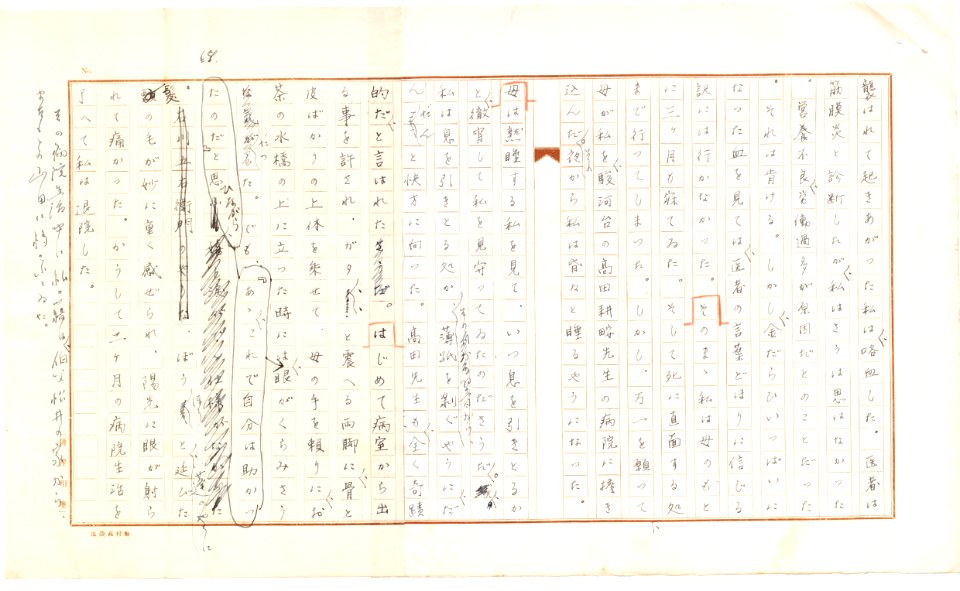 襲はれて起きあがつた私は喀血した。医者は
筋膜炎と診断したが、私はさうは思はなかつた
営養不良、労働過多が原因だとのことだつた
それは肯ける。しかし金だらひいつぱいに
なつた血を見ては、医者の言葉どほりに信じる
訳には行かなかつた。そのまゝ私は母のもと
に三ヶ月も寐てゐた。そして死に直面する処
まで行つてしまつた。しかし、万一を願つて
母が私を駿河台の高田耕畊先生の病院に担ぎ
込んだ。その夜から私は昏々と睡るやうになつた。
母は熟睡する私を見て、いつ息を引きとるか
と、徹宵して私を見守つてゐたのださうだ。
私は息を引きとる処か、薄紙を剥ぐやうに、だ
んだんと快方に向つた。高田先生も全く奇蹟
的だと言はれた。はじめて病室から出
る事を許され、ガタ〱と震へる両脚に、骨と
皮ばかりの上体を乗せて、母の手を頼りに、お
茶の水橋の上に立つた時には、眼がくらみさう
だつた。でも、『あゝ、これで自分は助かつ
たのだ』と思ひながら、
石川五右衛門のやうな、ぼう〱と延びた
髪の毛が妙に重く感ぜられ、陽光に眼が射ら
れて痛かつた。かうして六ヶ月の病院生活を
了へて私は退院した。
その病院生活中に私の籍は伯父松井の家から、
68.
No.